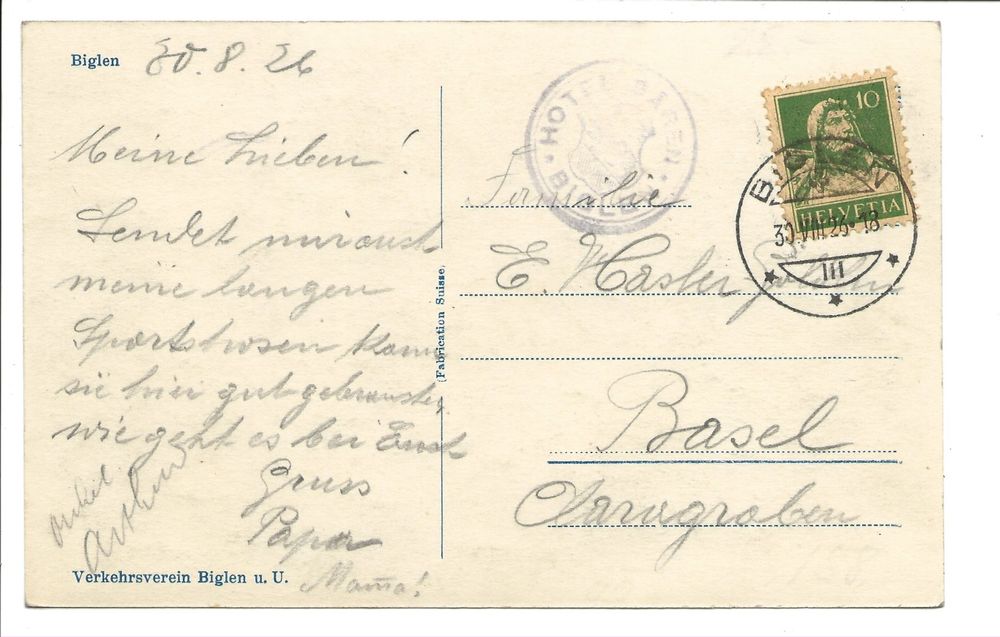 Biglen 30.8.26
Meine Lieben!
Sendet mir auch
meine langen
Sportshosen kann
sie hier gut gebrauchen,
wie geht es bei Euch
Gruss
Papa
Mama!
Onkel
Arthur
Verkehrsverein Biglen u. U.
(Fabrication Suisse)
HOTEL BÄREN
BIGLEN
10
HELVETIA
BIGLEN
30.VIII.26-18
III
Familie
E. Hasler
Basel